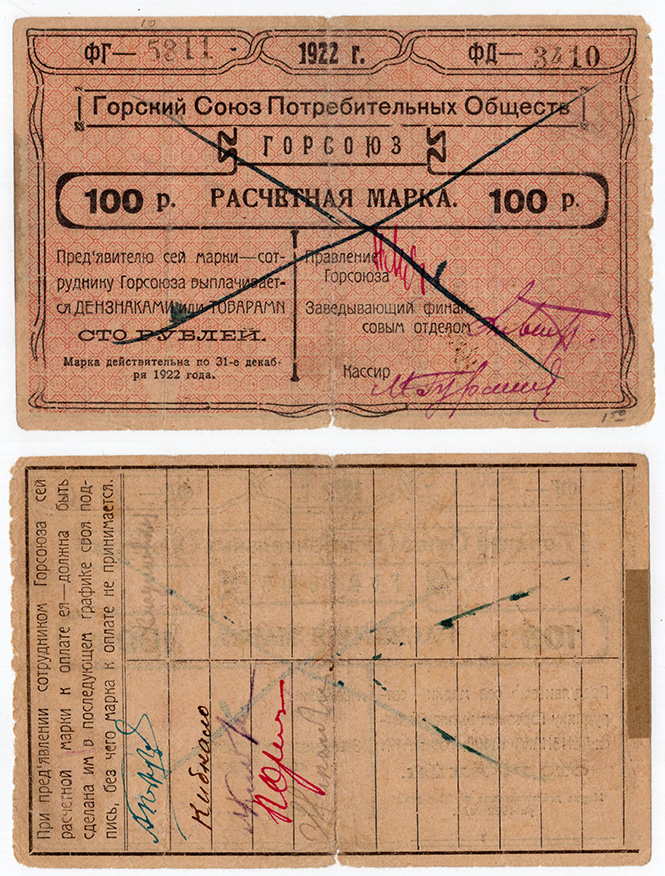 ФГ— 5811 1922 г. ФД— 3410
Горский Союз Потребительных Обществ
ГОРСОЮЗ
100 р. РАСЧЕТНАЯ МАРКА. 100 р.
Пред'явителю сей марки—сот-
руднику Горсоюза выплачивает-
ся ДЕНЗНАКАМИ или ТОВАРАМN
СТО РУБЛЕЙ.
Марка действительна по 31-е декаб-
ря 1922 года.
Правление
Горсоюза
Заведывающий финан-
совым отделом
Кассир
При пред'явлении сотрудником Горсоюза сей
расчетной марки к оплате ея—должна быть
сделана им в последующем графике своя под-
пись, без чего марка к оплате не принимается.
Кибкало